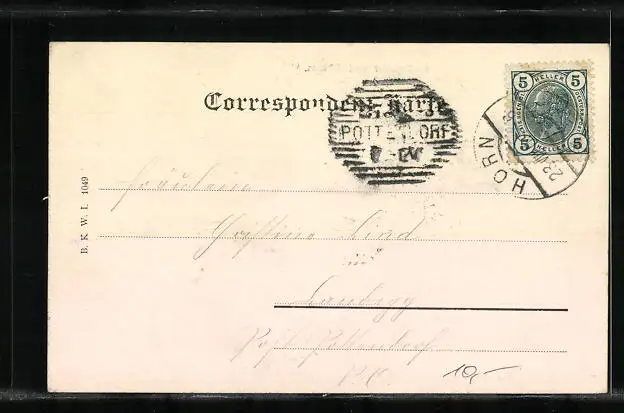 Correspondenz-Karte
POTTENDORF
HORN
23
5 HELLER 5
5 HELLER 5
B. K. W. I. 1049
Fräulein
Christine Lind
in
Landegg
Post Pottendorf
10,-